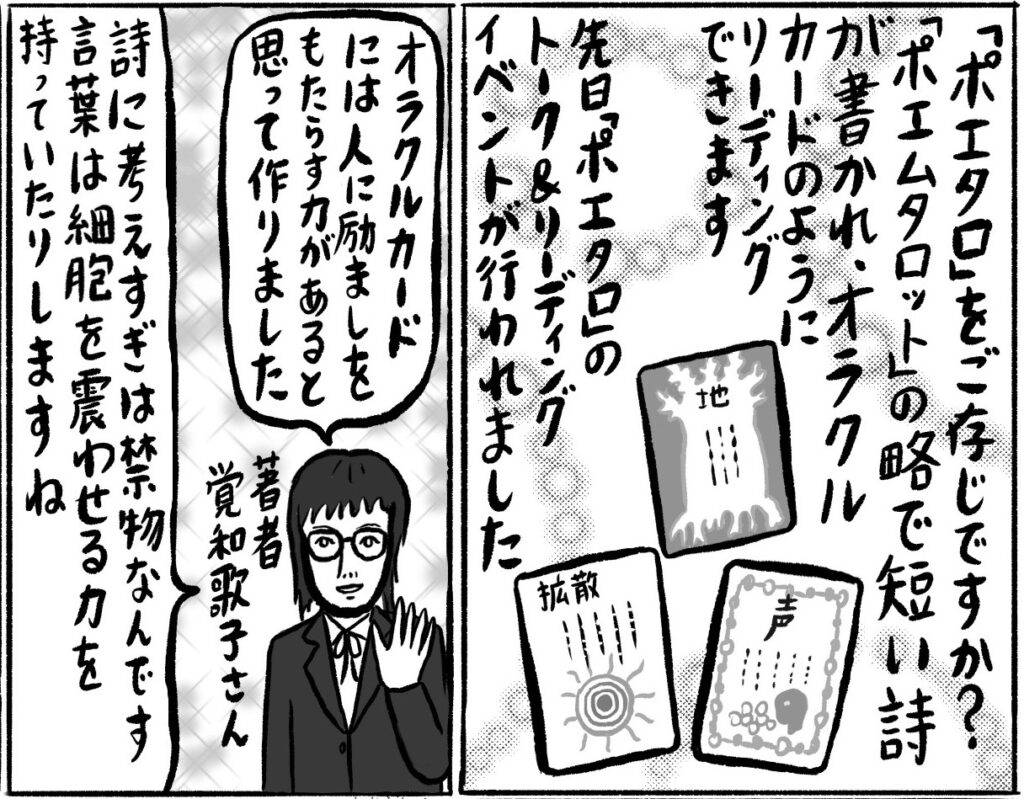 「ポエタロ」をご存じですか？
「ポエムタロット」の略で短い詩
が書かれ、オラクル
カードのように
リーディング
できます
先日「ポエタロ」の
トーク&リーディング
イベントが行われました
地
拡散
声
オラクルカード
には人に励ましを
もたらす力があると
思って作りました
著者
覚和歌子さん
詩に考えすぎは禁物なんです
言葉は細胞を震わせる力を
持っていたりしますね